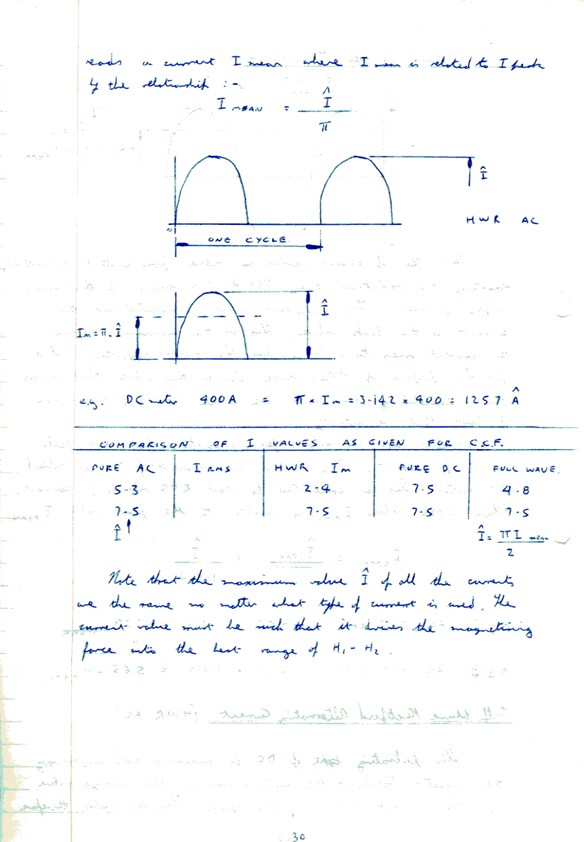 reads a current I mean where I mean is related to I peak
by the relationship :-
I MEAN = Î / π
Î
HWR AC
ONE CYCLE
Î
Im = π. Î
e.g. DC meter 400A = π × Im = 3.142 × 400 = 1257 Â
COMPARISON OF I VALUES AS GIVEN FOR C.S.F.
PURE AC I RMS HWR Im PURE D.C FULL WAVE
5.3 2.4 7.5 4.8
7.5 7.5 7.5 7.5
Î Î = π I mean / 2
Note that the maximum value Î of all the currents
are the same no matter what type of current is used. The
current value must be such that it drives the magnetising
force into the best range of H1 - H2.
30